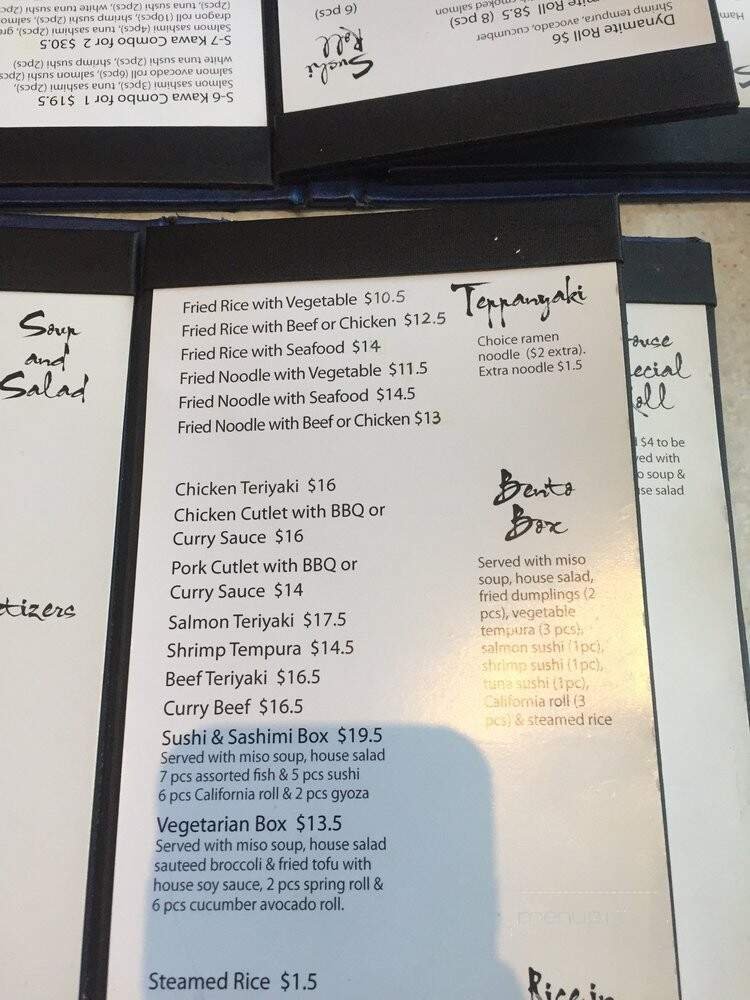 S-6 Kawa Combo for 1 $19.5
Salmon sashimi (3pcs), tuna sashimi (2pcs),
salmon avocado roll (6pcs), salmon sushi (2pcs)
white tuna sushi (2pcs), shrimp sushi (2pcs)
S-7 Kawa Combo for 2 $30.5
Salmon sashimi (4pcs), tuna sashimi (2pcs),
dragon roll (10pcs), shrimp sushi (2pcs),
(2pcs), tuna sushi (2pcs), white tuna sushi
Sushi
Roll
Dynamite Roll $6
Shrimp tempura, avocado, cucumber
Roll $8.5 (8 pcs)
smoked salmon
(6 pcs)
Soup
and
Salad
Teppanyaki
Choice ramen
noodle ($2 extra).
Extra noodle $1.5
Fried Rice with Vegetable $10.5
Fried Rice with Beef or Chicken $12.5
Fried Rice with Seafood $14
Fried Noodle with Vegetable $11.5
Fried Noodle with Seafood $14.5
Fried Noodle with Beef or Chicken $13
Bento
Box
Served with miso
soup, house salad,
fried dumplings (2
pcs), vegetable
tempura (3 pcs),
salmon sushi (1pc),
shrimp sushi (1pc),
tuna sushi (1pc),
California roll (3
pcs) & steamed rice
Chicken Teriyaki $16
Chicken Cutlet with BBQ or
Curry Sauce $16
Pork Cutlet with BBQ or
Curry Sauce $14
Salmon Teriyaki $17.5
Shrimp Tempura $14.5
Beef Teriyaki $16.5
Curry Beef $16.5
Sushi & Sashimi Box $19.5
Served with miso soup, house salad
7 pcs assorted fish & 5 pcs sushi
6 pcs California roll & 2 pcs gyoza
Vegetarian Box $13.5
Served with miso soup, house salad
sauteed broccoli & fried tofu with
house soy sauce, 2 pcs spring roll &
6 pcs cucumber avocado roll.
Steamed Rice $1.5
$4 to be
with
soup &
salad